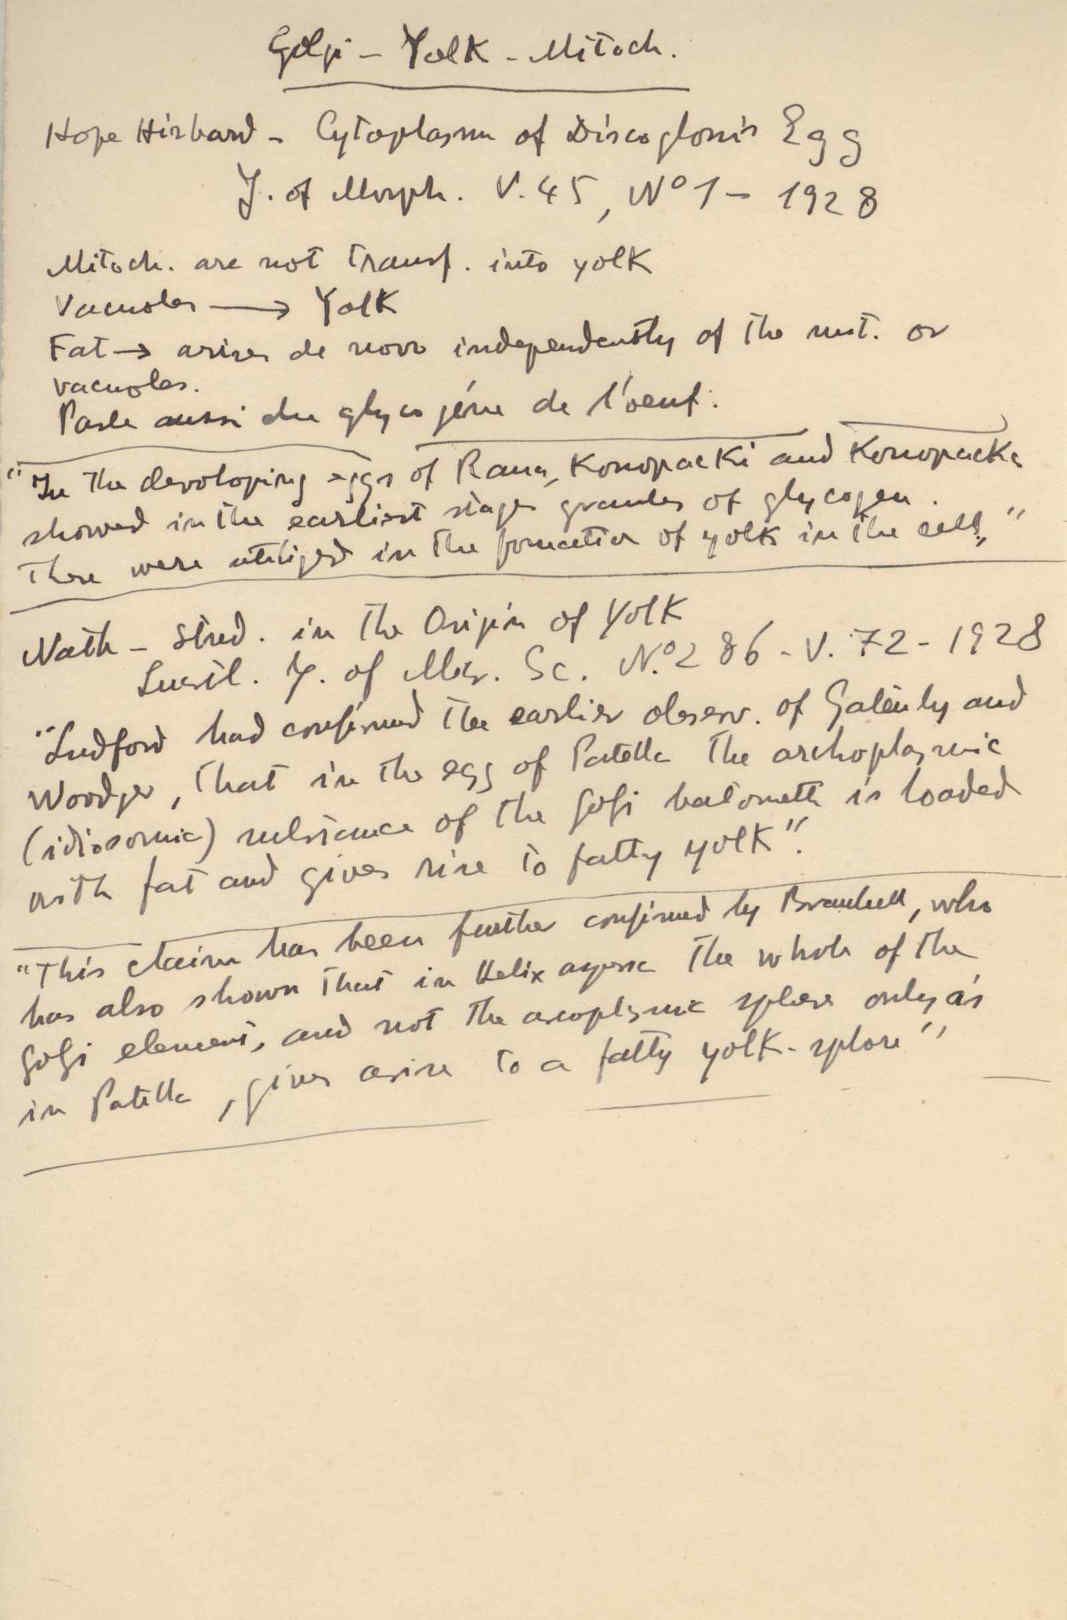 Golgi - Yolk - Mitoch.
Hope Hibbard - Cytoplasm of Discoglossis Egg
J. of Morph. V. 45, Nº 1 - 1928
Mitoch. are not transf. into yolk
Vacuoles → Yolk
Fat → arises de novo independently of the mit. or
vacuoles.
Parle aussi du glycogéne de l'oeuf.
"In the developing eggs of Rana, Konopacki and Konopacka
showed in the earliest stages granules of glycogen.
These were utilized in the formation of yolk in the cell"
Nath - Stud. in the Origin of Yolk
J. of Micr. Sc. N.º 286 - V. 72 - 1928
"Ludford had confirmed the earlier observ. of Gatenby and
Woodger, that in the egg of Patella the archoplasmic
(idiosomic) substance of the Golgi batonette is loaded
with fat and gives rise to fatty yolk".
"This claim has been further confirmed by Brambell, who
has also shown that in Helix aspersa the whole of the
Golgi element, and not the arcoplasmic sphere only as
in Patella, gives arise to a fatty yolk-sphere"